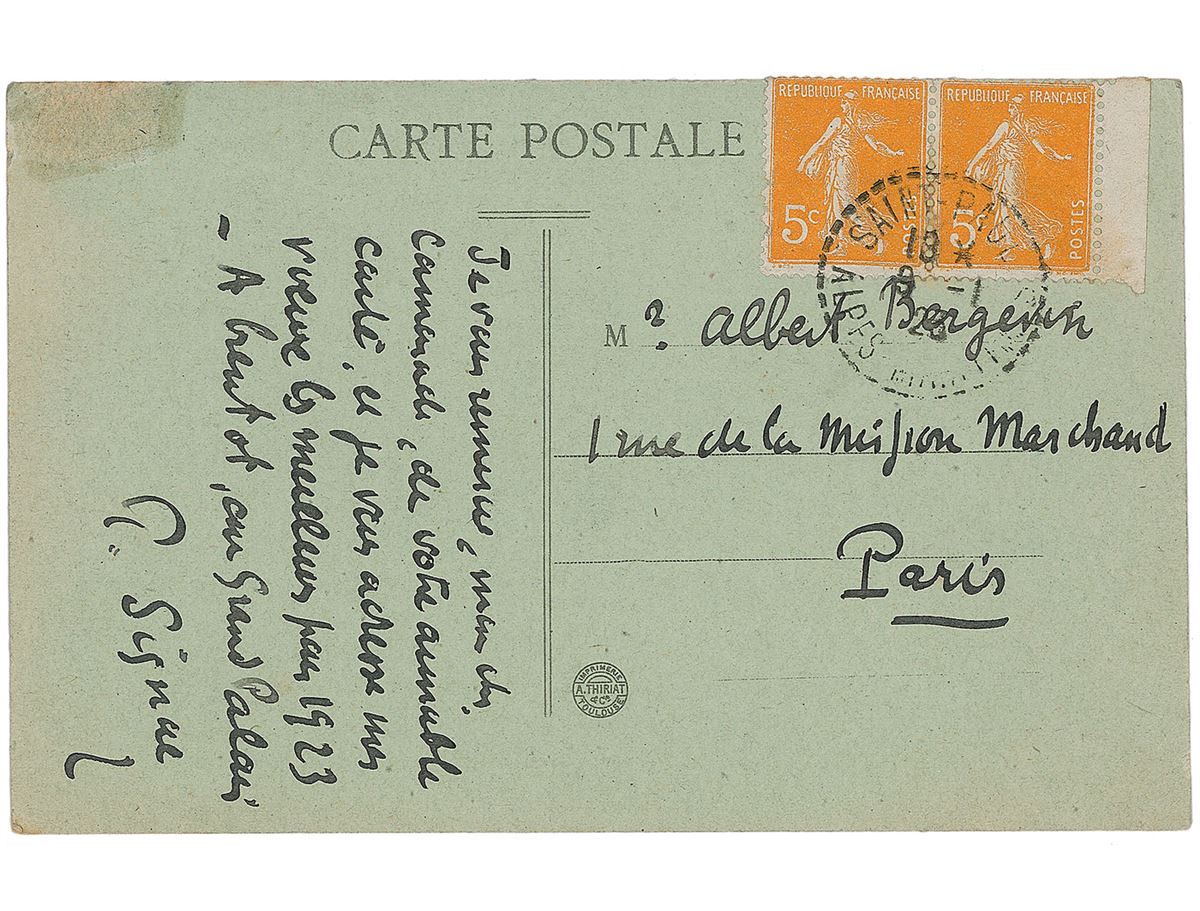 CARTE POSTALE
REPUBLIQUE FRANÇAISE
5c
POSTES
REPUBLIQUE FRANÇAISE
5c
POSTES
SAINT-PAUL
18 *
ALPES MARITIMES
Je vous remercie, mon cher
Camarade, de votre aimable
carte, et je vous adresse mes
voeux les meilleurs pour 1923
- A bientot, au Grand Palais
P. Signac
M r. Albert Bergevin
1 rue de la Mission Marchand
Paris
IMPRIMERIE
A. THIRIAT
& Cie
TOULOUSE